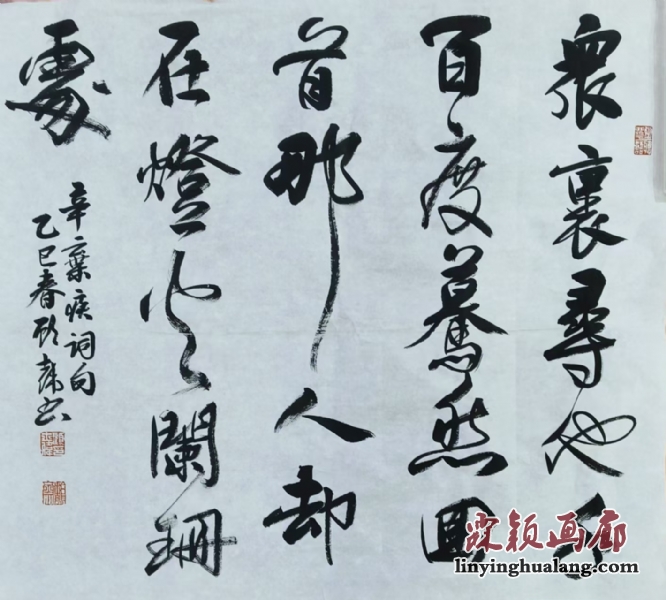 衆裏尋他千
百度驀然回
首那人却
在燈火闌珊
處
辛棄疾詞句
乙巳春
霖颖画廊
linyinghualang.com